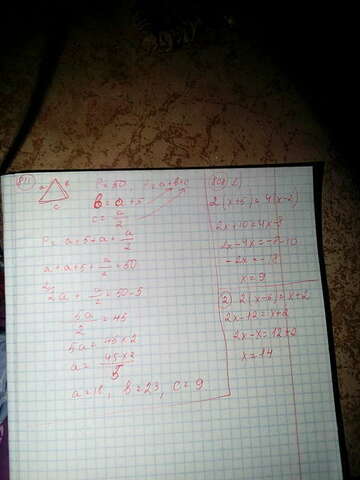 811
a b c
P=50, P=a+b+c
b=a+5
c=a/2
P=a+5+a+a/2
a+a+5+a/2=50
2a+a/2=50-5
5a/2=45
5a=45×2
a=45×2/5
a=18, b=23, c=9
1)
2(x+5)=4(x-2)
2x+10=4x-8
2x-4x=-8-10
-2x=-18
x=9
2) 2(x-6)=x+2
2x-12=x+2
2x-x=12+2
x=14